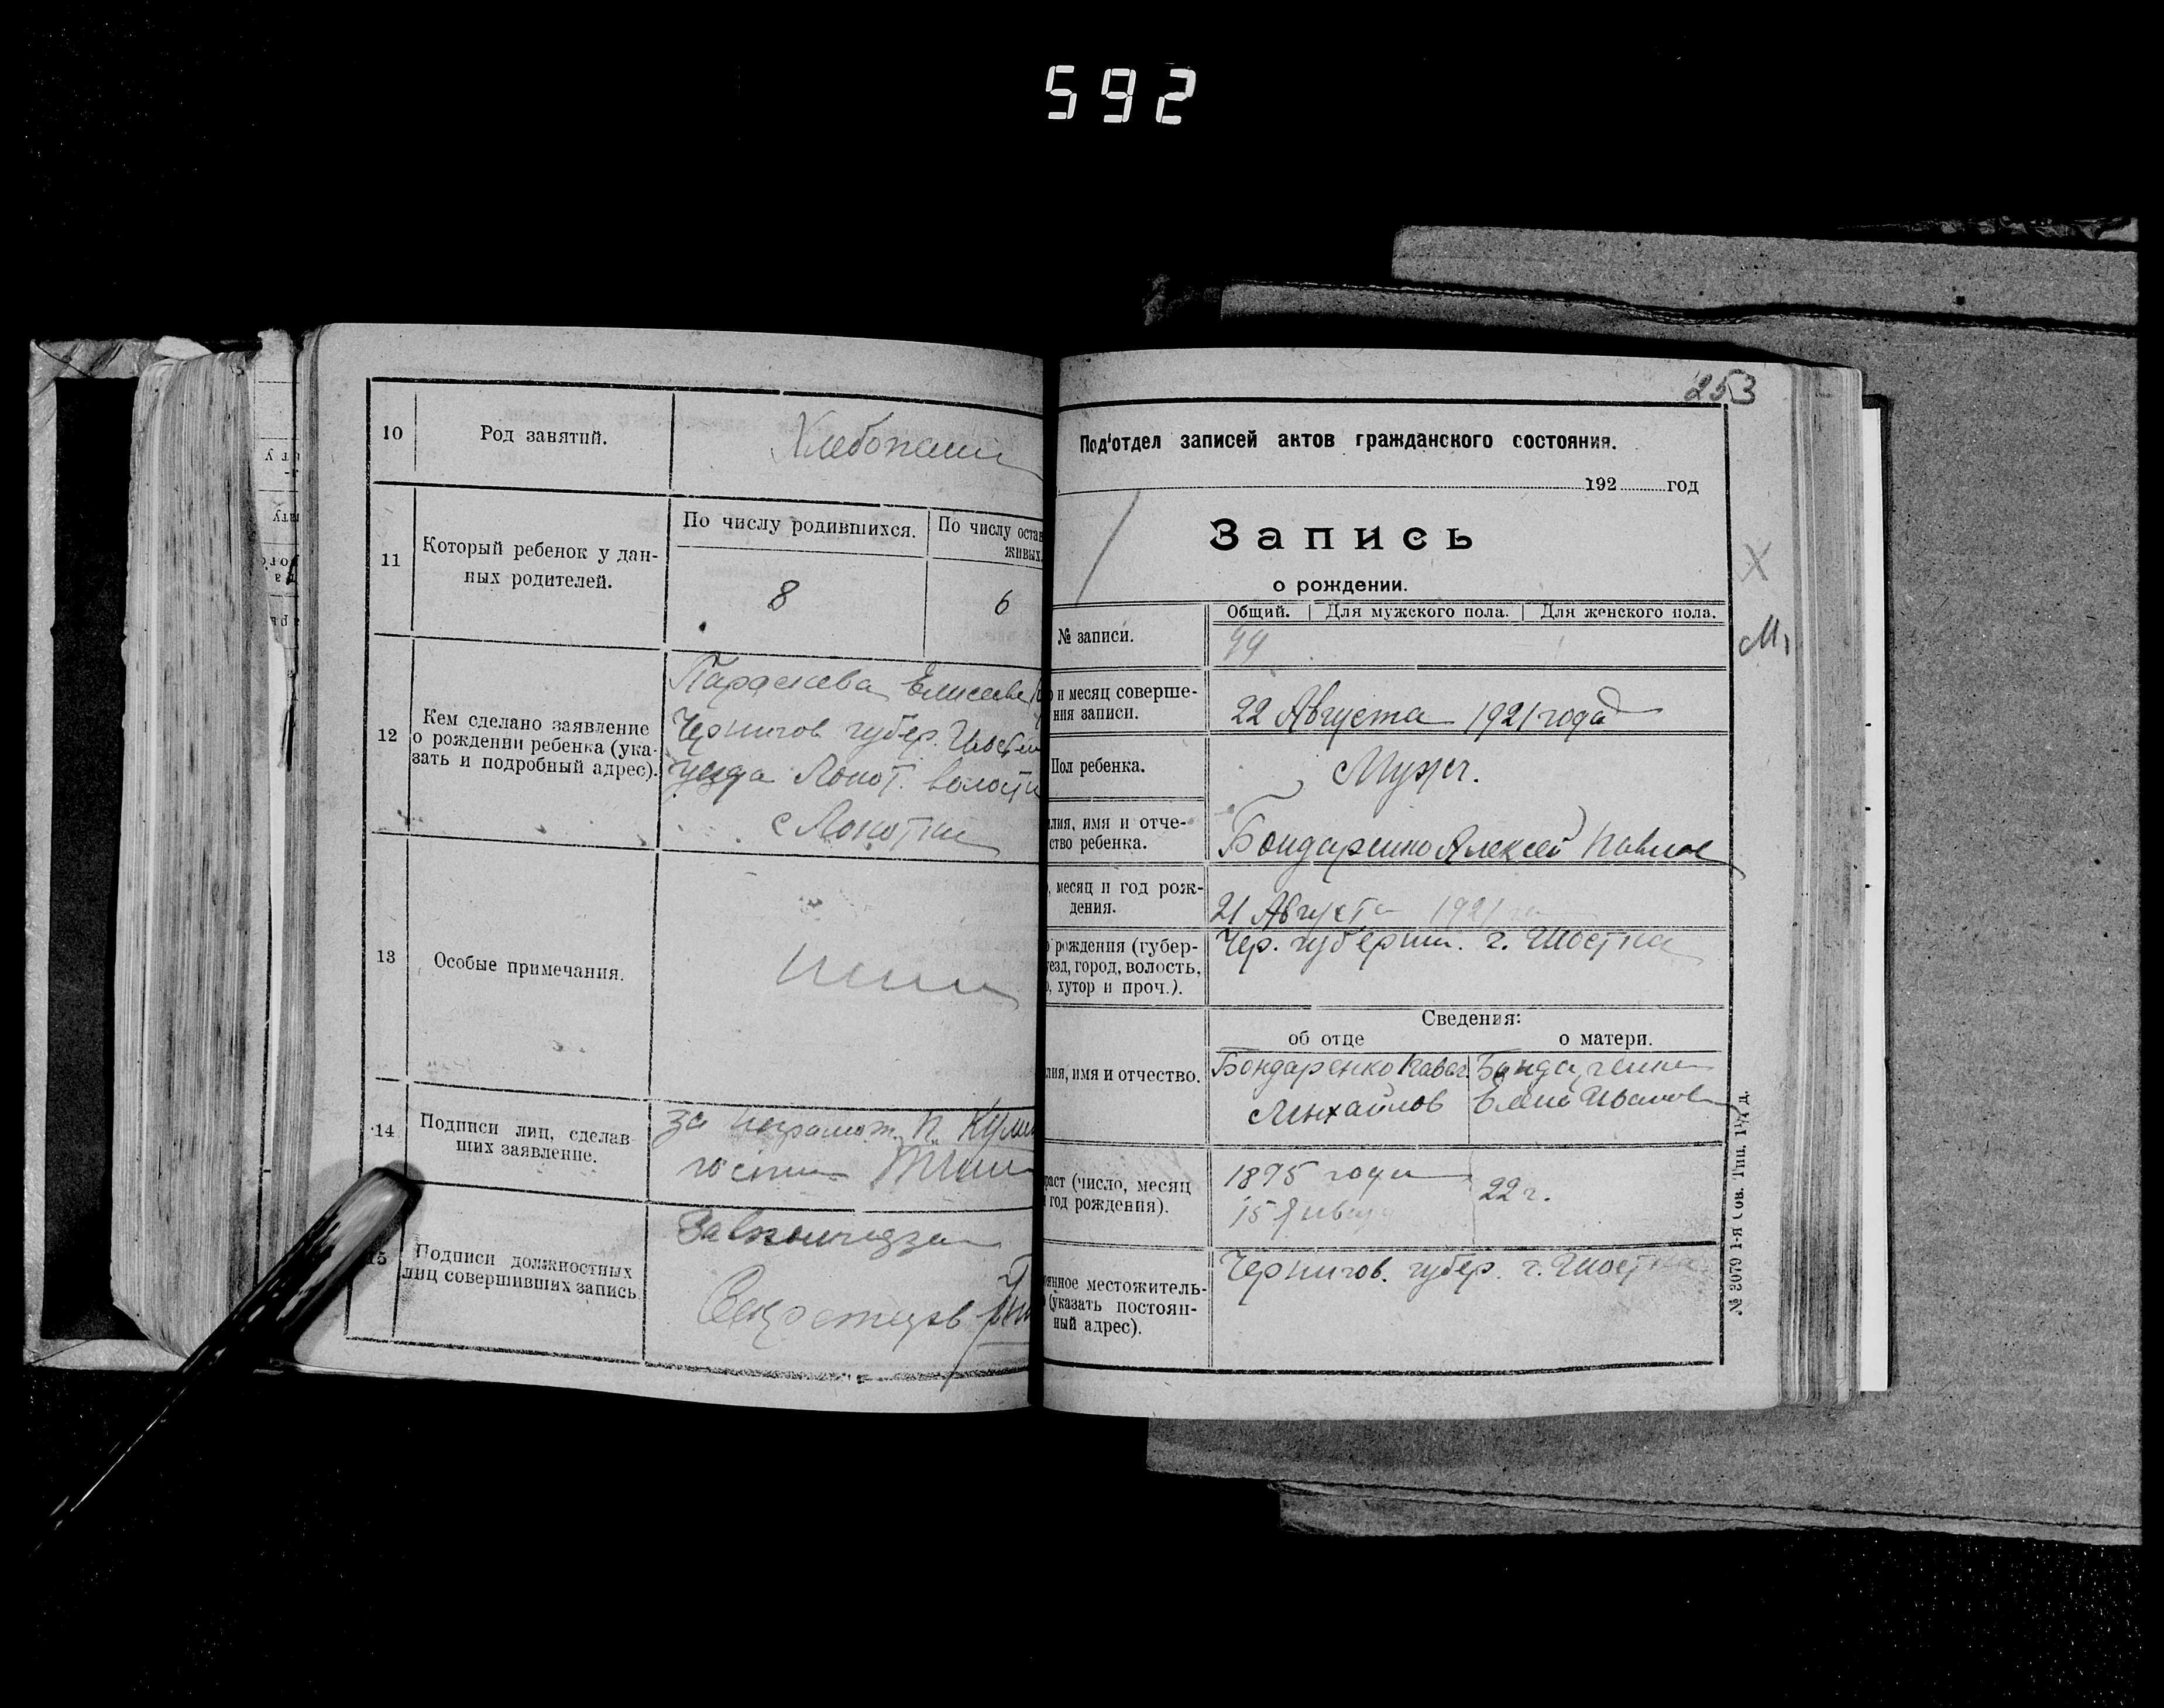 592
10
Род занятий.
11
Который ребенок у дан-
ных родителей.
По числу родившихся.
По числу остав
живых.
8
6
12
Кем сделано заявление
о рождении ребенка (ука-
зать и подробный адрес).
Параскева Елисеев
Чернигов губер. Шостен
уезда Локот. волости
с Локотки
13
Особые примечания.
14
Подписи лиц, сделав-
щих заявление.
за неграмот. П.
15
Подписи должностных
лиц совершивших запись.
253
Под'отдел записей актов гражданского состояния.
192 год
Запись
о рождении.
Х
М
Общий. Для мужского пола. Для женского пола.
№ записи.
99
о и месяц соверше-
ния записи.
22 Августа 1921 года
Пол ребенка.
Мужч.
лия, имя и отче-
ство ребенка.
Бондаренко Алексей Павлов
, месяц и год рож-
дения.
21 Августа 1921
о рождения (губер-
уезд, город, волость,
о, хутор и проч.).
Чер. губерни. г. Шостка
Сведения:
об отце
о матери.
лия, имя и отчество.
Бондаренко Павел
Михайлов
Бондаренко
Елена Иванов
раст (число, месяц
и год рождения).
1895 года
15 Январ
22 г.
оянное местожитель-
о (указать постоян-
ный адрес).
Чернигов. губер. г. Шостка
№ 3079 1-я Сов. Тип.